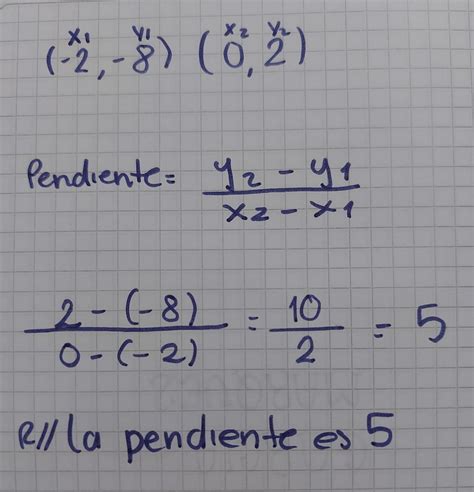 x1 y1 x2 y2
(-2, -8) (0, 2)
Pendiente = y2 - y1
x2 - x1
2 - (-8) = 10 = 5
0 - (-2) 2
R// la pendiente es 5